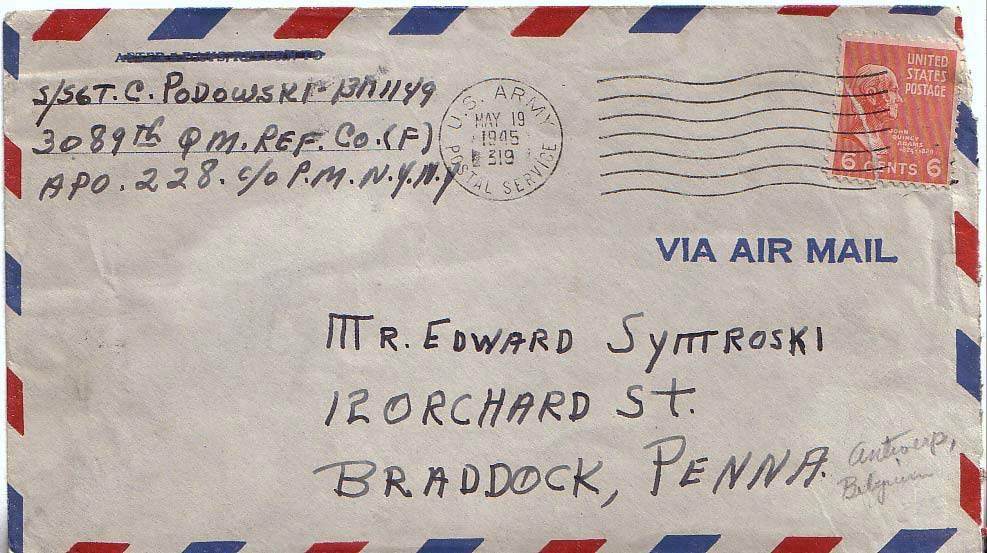 S/SGT. C. PODOWSKI
3089th QM. REF. CO. (F)
APO. 228. c/o P.M. N.Y. N.Y
U.S. ARMY
MAY 19
1945
319
POSTAL SERVICE
UNITED
STATES
POSTAGE
JOHN
QUINCY
ADAMS
6 CENTS 6
VIA AIR MAIL
MR. EDWARD SYMTROSKI
12 ORCHARD ST.
BRADDOCK, PENNA.
Antwerp,
Belgium